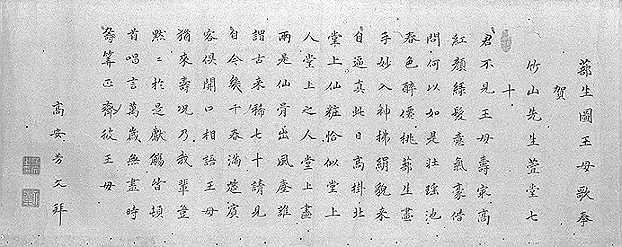 生圖王母歌奉
賀
竹山先生萱堂七
十
君不見王母壽寂高
紅顏綠髮意氣豪借
問何以如是壯瑤池
春色醉僊桃生畫
手妙入神掃絹貌来
自逼真此日高掛北
堂上仙粧恰似堂上
人堂上之人堂上畫
兩是仙骨出風塵誰
謂古来稀七十請見
自今幾千春滿筵賓
容倶開口相語王母
猶来壽況乃我輩豈
默々於是獻觴皆頓
首唱言萬歲無盡時
壽筭正齊彼王母
高安芳文拜